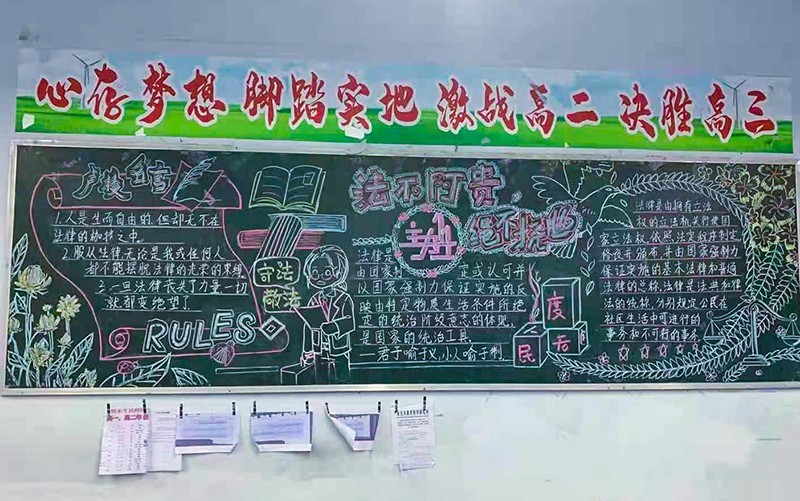 心存梦想 脚踏实地 激战高二 决胜高三
卢梭名言
1.人是生而自由的.但却无不在
法律的枷锁之中.
2.服从法律:无论是我或任何人
都不能摆脱法律的光荣的束缚
3.一旦法律丧失了力量一切
就都变绝望了
RULES
守法
敬法
法不阿贵,
绳不挠曲
法律是
由国家
定或认可并
以国家强制力保证实施的反
映由特定物质生活条件所决
定的统治阶级意志的体现.
是国家的统治工具.
—君子喻于义,小人喻于利
度
民
法律是由拥有立法
权的立法机关行使国
家立法权.依照法定程序制定
修改并颁布.并由国家强制力
保证实施的基本法律和普通
法律的总称.法律是法典和律
法的统称.分别规定公民在
社区生活中可进行的
事务和不可行的事务
高一、高二年级